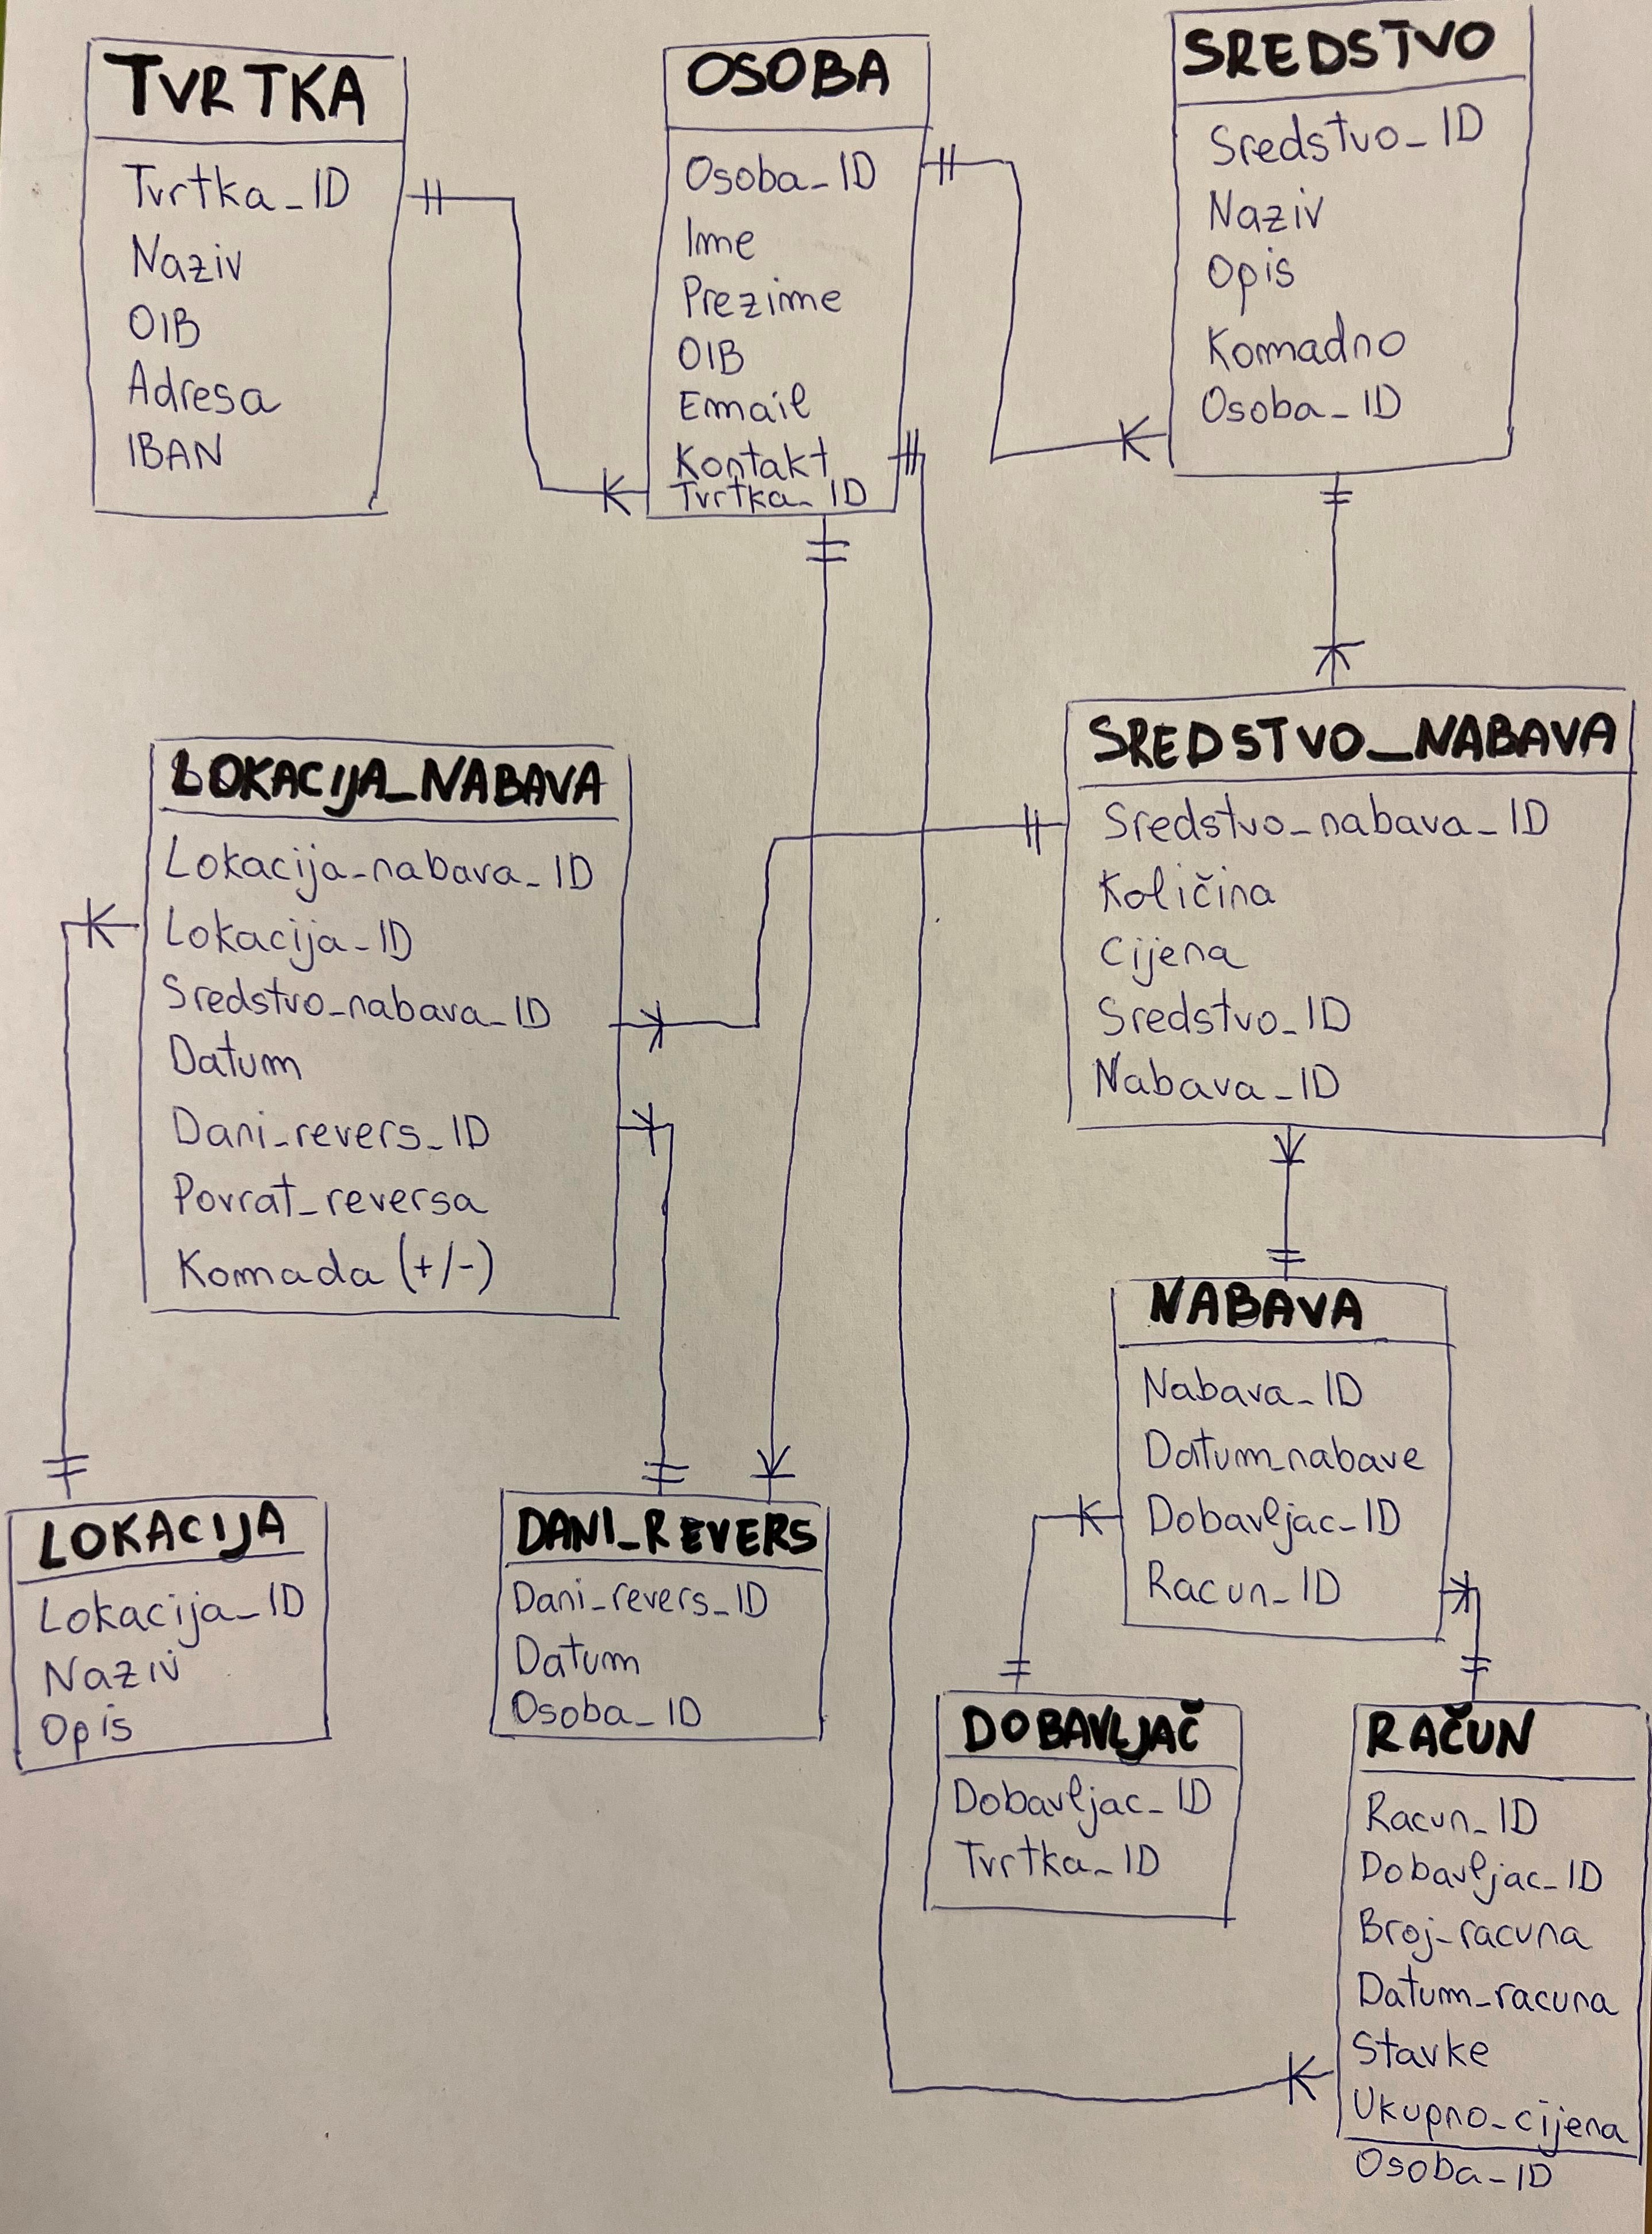 TVRTKA
Tvrtka_ID
Naziv
OIB
Adresa
IBAN
OSOBA
Osoba_ID
Ime
Prezime
OIB
Email
Kontakt
Tvrtka_ID
SREDSTVO
Sredstvo_ID
Naziv
Opis
Komadno
Osoba_ID
LOKACIJA_NABAVA
Lokacija_nabava_ID
Lokacija_ID
Sredstvo_nabava_ID
Datum
Dani_revers_ID
Povrat_reversa
Komada (+/-)
SREDSTVO_NABAVA
Sredstvo_nabava_ID
Količina
Cijena
Sredstvo_ID
Nabava_ID
NABAVA
Nabava_ID
Datum_nabave
Dobavljac_ID
Racun_ID
LOKACIJA
Lokacija_ID
Naziv
Opis
DANI_REVERS
Dani_revers_ID
Datum
Osoba_ID
DOBAVLJAČ
Dobavljac_ID
Tvrtka_ID
RAČUN
Racun_ID
Dobavljac_ID
Broj_racuna
Datum_racuna
Stavke
Ukupno_cijena
Osoba_ID